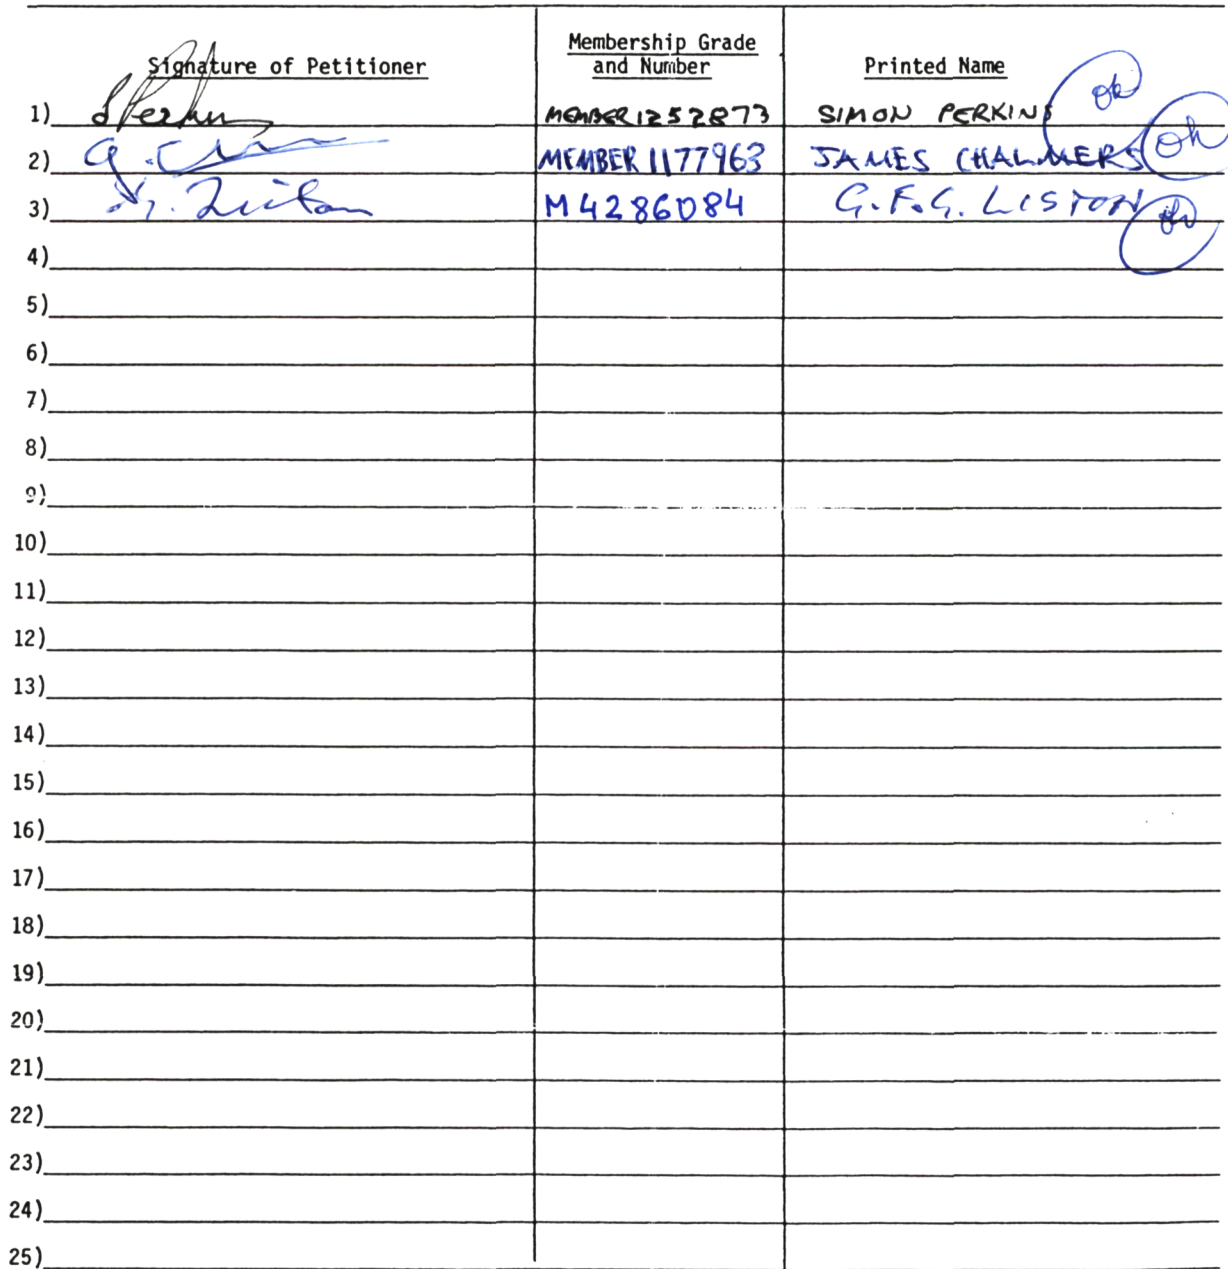 Signature of Petitioner Membership Grade and Number Printed Name
1) SPerkins MEMBER 1252873 SIMON PERKINS ok
2) MEMBER 1177963 JAMES CHALMERS ok
3) G. Liston M4286084 G.F.G. LISTON ok
4)
5)
6)
7)
8)
9)
10)
11)
12)
13)
14)
15)
16)
17)
18)
19)
20)
21)
22)
23)
24)
25)